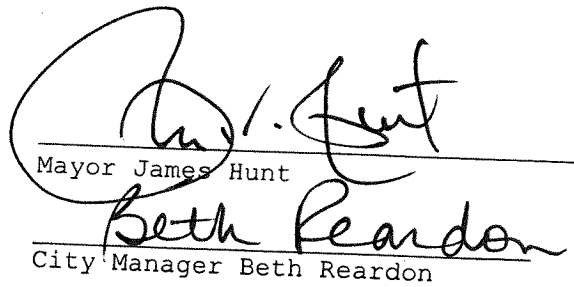 Hunt
Mayor James Hunt
Beth Reardon
City Manager Beth Reardon